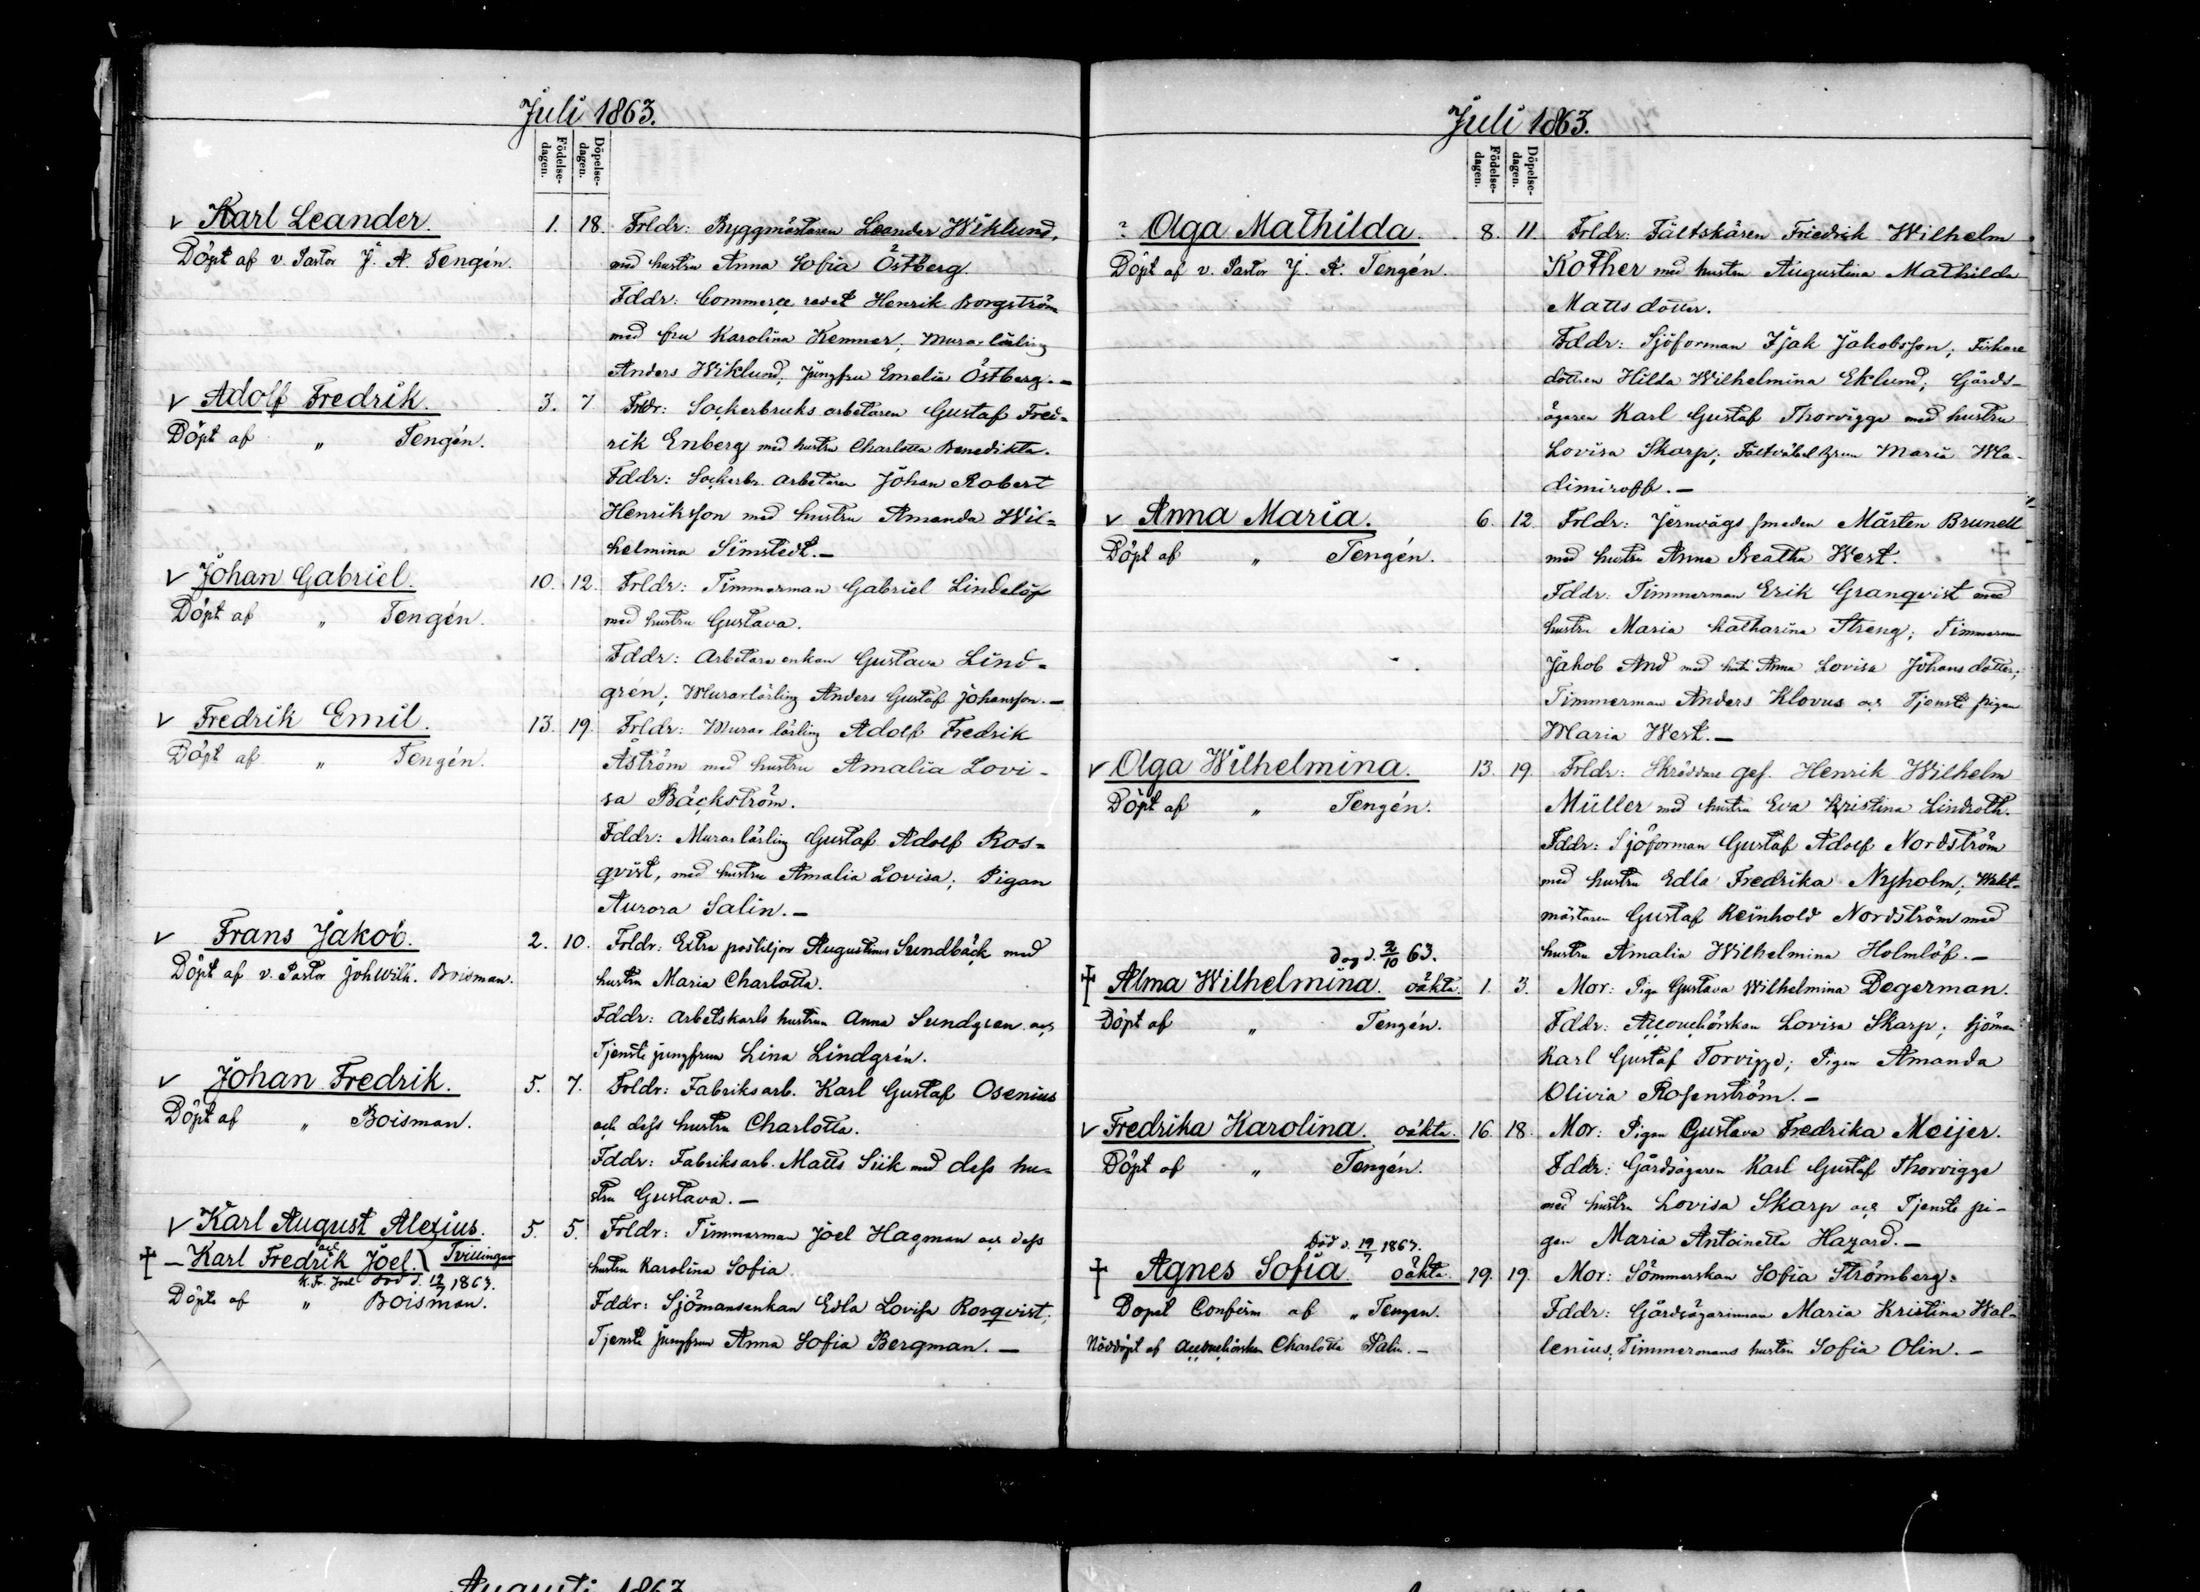 Juli 1863.
Födelse-dagen.
Döpelse-dagen.
v Karl Leander. 1. 18. Frldr: Byggmästaren Leander Wiklund,
Döpt af v. Pastor J. A. Tengén. med hustru Anna Sofia Östberg.
Fddr: Commerce rådet Henrik Borgström
med fru Karolina Kemner, Murarlärling
Anders Wiklund, Jungfru Emelia Östberg. —
v Adolf Fredrik. 3. 7. Frldr: Sockerbruks arbetaren Gustaf Fred-
Döpt af " Tengén. rik Enberg med hustru Charlotta Benedikta.
Fddr: Sockerbr. arbetaren Johan Robert
Henriksson med hustru Amanda Wil-
helmina Simstedt. —
v Johan Gabriel. 10. 12. Frldr: Timmerman Gabriel Lindelöf
Döpt af " Tengén. med hustru Gustava.
Fddr: Arbetare enkan Gustava Lind-
grén; Murarlärling Anders Gustaf Johansson. —
v Fredrik Emil. 13. 19. Frldr: Murarlärling Adolf Fredrik
Döpt af " Tengén. Åström med hustru Amalia Lovi-
sa Bäckström.
Fddr: Murarlärling Gustaf Adolf Ros-
qvist, med hustru Amalia Lovisa; Pigan
Aurora Salin. —
v Frans Jakob. 2. 10. Frldr: Extra postiljon Augustinus Sundbäck med
Döpt af v. Pastor Joh Wilh. Boisman. hustru Maria Charlotta.
Fddr: Arbetskarls hustrun Anna Sundgren och
Tjenste jungfrun Lina Lindgrén.
v Johan Fredrik. 5. 7. Frldr: Fabriksarb. Karl Gustaf Osenius
Döpt af " Boisman. och dess hustru Charlotta.
Fddr: Fabriksarb. Matts Siik med dess hu-
stru Gustava. —
v Karl August Alexius. 5. 5. Frldr: Timmerman Joel Hagman och dess
och
† — Karl Fredrik Joel. Tvillingar hustru Karolina Sofia.
K. Fr. Joel död d. 12/7 1863.
Döpte af " Boisman. Fddr: Sjömansenkan Edla Lovisa Rosqvist;
Tjenste jungfrun Anna Sofia Bergman. —
Juli 1863.
Födelse-dagen.
Döpelse-dagen.
Olga Mathilda. 8. 11. Frldr: Fältskären Friedrik Wilhelm
Döpt af v. Pastor J. A. Tengén. Kother med hustru Augustina Mathilda
Mattsdotter.
Fddr: Sjöforman Isak Jakobsson; Fiskare
dottren Hilda Wilhelmina Eklund; Gårds-
ägaren Karl Gustaf Thorvigge med hustru
Lovisa Skarp; Maria Wla-
dimiroff. —
v Anna Maria. 6. 12. Frldr: Jernvägs smeden Mårten Brunell
Döpt af " Tengén. med hustru Anna Beatha West. †
Fddr: Timmerman Erik Granqvist med
hustru Maria Katharina Streng; Timmerman
Jakob And med hust. Anna Lovisa Johansdotter;
Timmerman Anders Klovus och Tjenste pigan
Maria West. —
v Olga Wilhelmina. 13. 19. Frldr: Skräddare ges. Henrik Wilhelm
Döpt af " Tengén. Müller med hustru Eva Kristina Lindroth.
Fddr: Sjöforman Gustaf Adolf Nordström
med hustru Edla Fredrika Nyholm; Wakt-
mästaren Gustaf Reinhold Nordström med
hustru Amalia Wilhelmina Holmlöf. —
dog d. 2/10 63.
† Alma Wilhelmina. oäkta. 1. 3. Mor: Piga Gustava Wilhelmina Degerman.
Döpt af " Tengén. Fddr: Accouchörskan Lovisa Skarp; Sjöman
Karl Gustaf Torvigge; Pigan Amanda
Olivia Rosenström. —
v Fredrika Karolina. oäkta. 16. 18. Mor: Pigan Gustava Fredrika Meijer.
Döpt af " Tengén. Fddr: Gårdsägaren Karl Gustaf Thorvigge
med hustru Lovisa Skarp och Tjenste pi-
gan Maria Antoinetta Hazard. —
Död d. 19/7 1863.
† Agnes Sofia oäkta. 19. 19. Mor: Sömmerskan Sofia Strömberg.
Dopet Confirm af " Tengen. Fddr: Gårdsägarinnan Maria Kristina Wal-
Nöddöpt af Accouchörskan Charlotta Palin. — lenius, Timmermans hustru Sofia Olin. —
Augusti 1863.